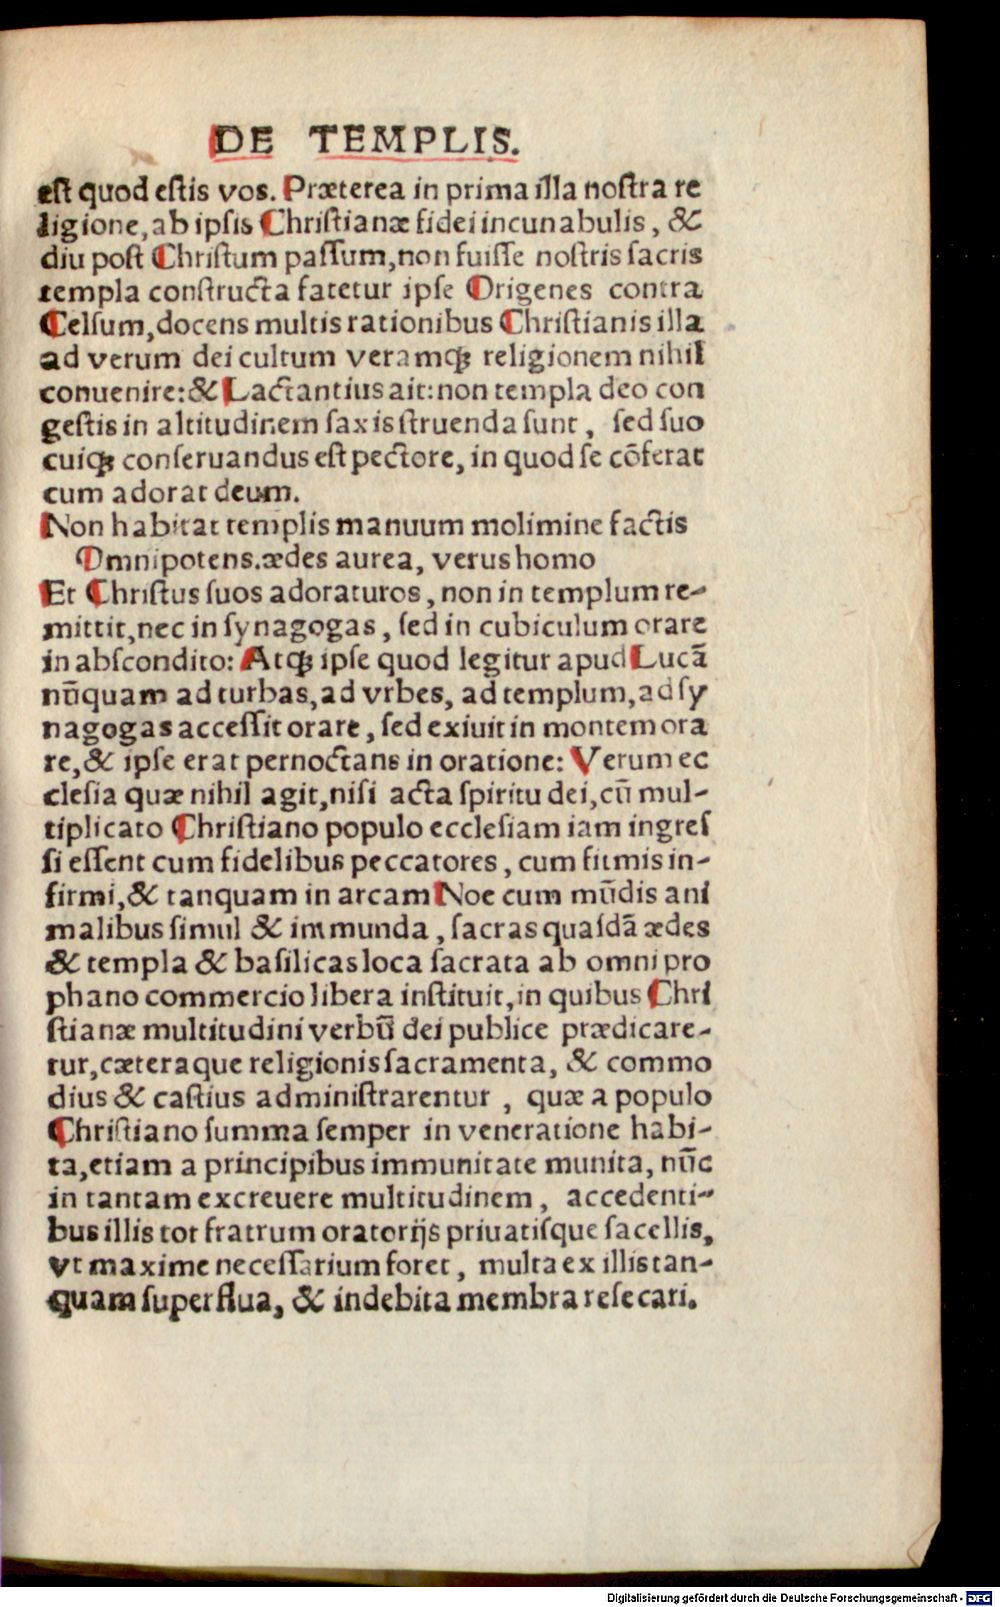 DE TEMPLIS.
est quod estis vos. Præterea in prima illa nostra re
ligione, ab ipsis Christianæ fidei incunabulis, &
diu post Christum passum, non fuisse nostris sacris
templa constructa fatetur ipse Origenes contra
Celsum, docens multis rationibus Christianis illa
ad verum dei cultum veramqꝫ religionem nihil
conuenire: & Lactantius ait: non templa deo con
gestis in altitudinem saxis struenda sunt, sed suo
cuiqꝫ conseruandus est pectore, in quod se cōferat
cum adorat deum.
Non habitat templis manuum molimine factis
Omnipotens. ædes aurea, verus homo
Et Christus suos adoraturos, non in templum re-
mittit, nec in synagogas, sed in cubiculum orare
in abscondito: Atqꝫ ipse quod legitur apud Lucā
nūquam ad turbas, ad vrbes, ad templum, ad sy
nagogas accessit orare, sed exiuit in montem ora
re, & ipse erat pernoctans in oratione: Verum ec
clesia quæ nihil agit, nisi acta spiritu dei, cū mul-
tiplicato Christiano populo ecclesiam iam ingres
si essent cum fidelibus peccatores, cum firmis in-
firmi, & tanquam in arcam Noe cum mūdis ani
malibus simul & immunda, sacras quasdā ædes
& templa & basilicas loca sacrata ab omni pro
phano commercio libera instituit, in quibus Chri
stianæ multitudini verbū dei publice prædicare-
tur, cæteraque religionis sacramenta, & commo
dius & castius administrarentur, quæ a populo
Christiano summa semper in veneratione habi-
ta, etiam a principibus immunitate munita, nūc
in tantam excreuere multitudinem, accedenti-
bus illis tot fratrum oratorijs priuatisque sacellis,
vt maxime necessarium foret, multa ex illis tan-
quam superflua, & indebita membra resecari.
Digitalisierung gefördert durch die Deutsche Forschungsgemeinschaft - DFG